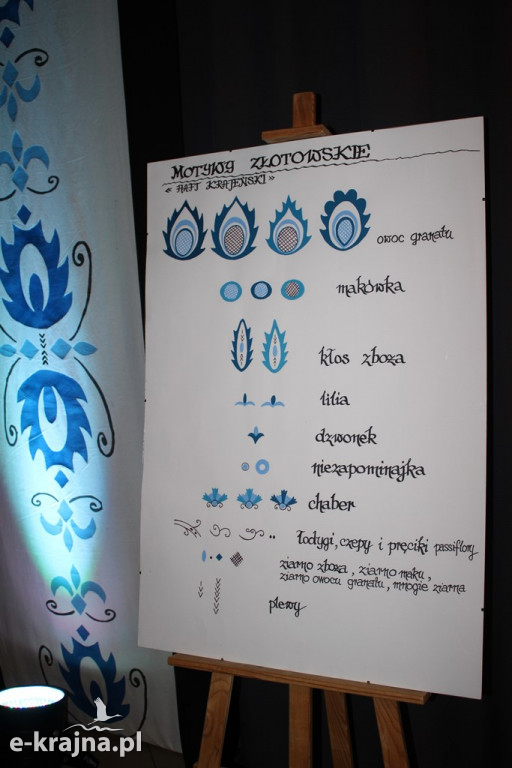 MOTYWY ZŁOTOWSKIE
« HAFT KRAJEŃSKI »
owoc granatu
makówka
kłos zboża
lilia
dzwonek
niezapominajka
chaber
łodygi, czepy i pręciki passiflory
ziarno zboża, ziarno maku,
ziarno owocu granatu, mnogie ziarna
plewy
e-krajna.pl